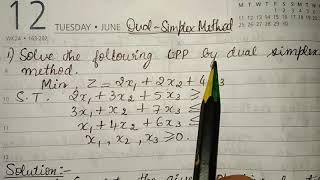 12
TUESDAY • JUNE
Dual-Simplex Method
WK24 • 163-202
1) Solve the following LPP by dual simplex
method.
Min Z = 2x₁ + 2x₂ + 4 3
S.T. 2x₁ + 3x₂ + 5x₃ ≥
3x₁ + x₂ + 7x₃ ≤
x₁ + 4x₂ + 6x₃ ≤
x₁, x₂, x₃ ≥ 0.
Solution:-
the given